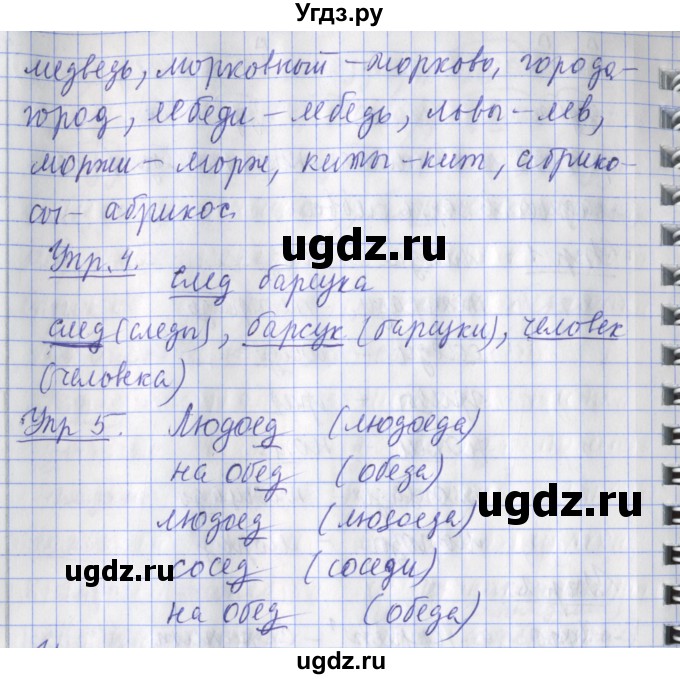 Угдз.ру
медведь, морковный - морковь, города-
город, лебеди - лебедь, львы - лев,
моржи - морж, киты - кит, абрико-
сы - абрикос.
ugdz.ru
Упр. 4.
след барсука
след (следы), барсук (барсуки), человек
(человека)
Упр 5. Людоед (людоеда)
на обед (обеда)
ugdz.ru
людоед (людоеда)
сосед (соседи)
ugdz.ru
на обед (обеда)
ugdz.ru